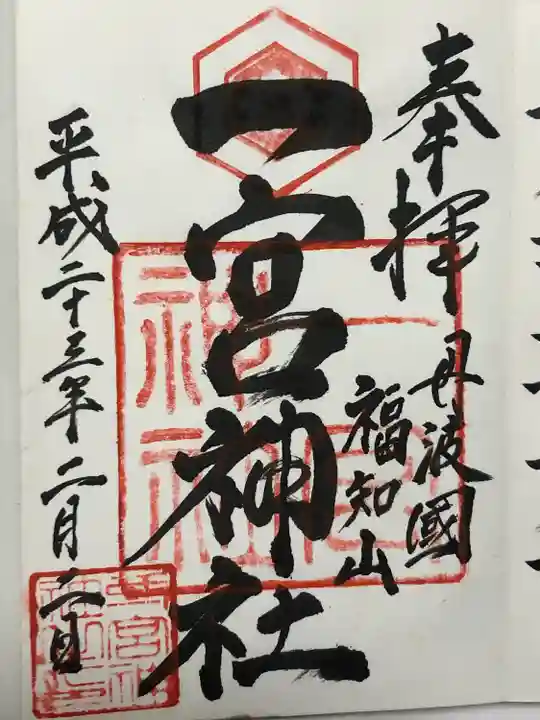 奉拝
丹波國
福知山
一宮神社
平成二十三年二月二日
一宮
神社